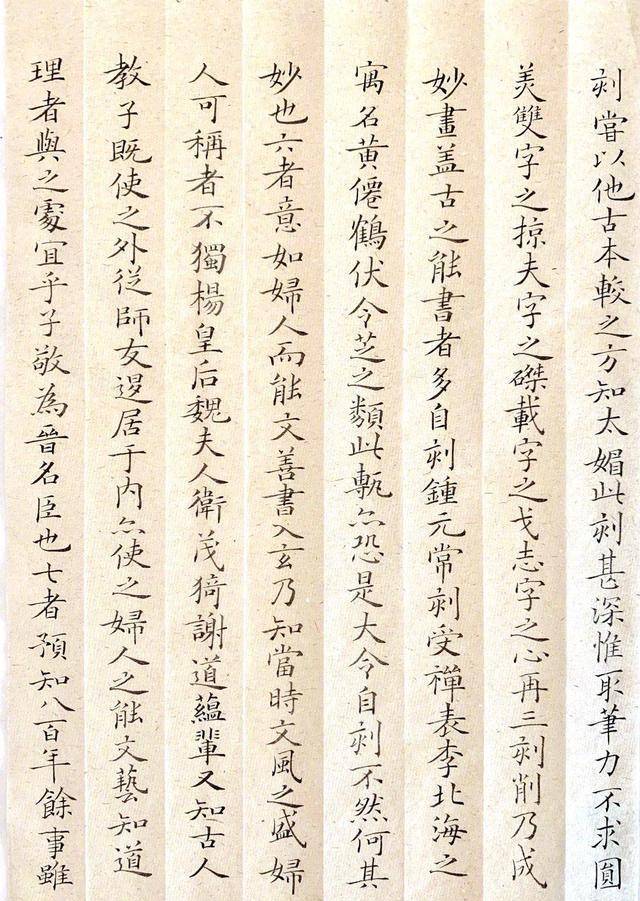 刻嘗以他古本較之方知太媚此刻甚深惟取筆力不求圓
美雙字之掠夫字之磔載字之戈志字之心再三刻削乃成
妙畫盖古之能書者多自刻鍾元常刻受禪表李北海之
寓名黃僊鶴伏令芝之類此甎亦恐是大令自刻不然何其
妙也六者意如婦人而能文善書入玄乃知當時文風之盛婦
人可稱者不獨楊皇后魏夫人衛茂猗謝道蘊輩又知古人
教子既使之外從師友退居于內亦使之婦人之能文藝知道
理者與之處宜乎子敬為晉名臣也七者預知八百年餘事雖